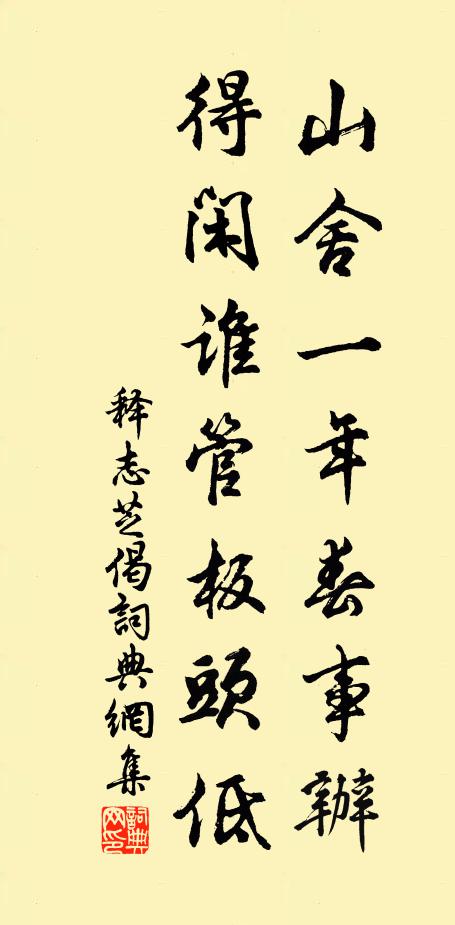 山舍一年春事辦
得閑誰管板頭低
释志芝偈詞典網集
詞典網印